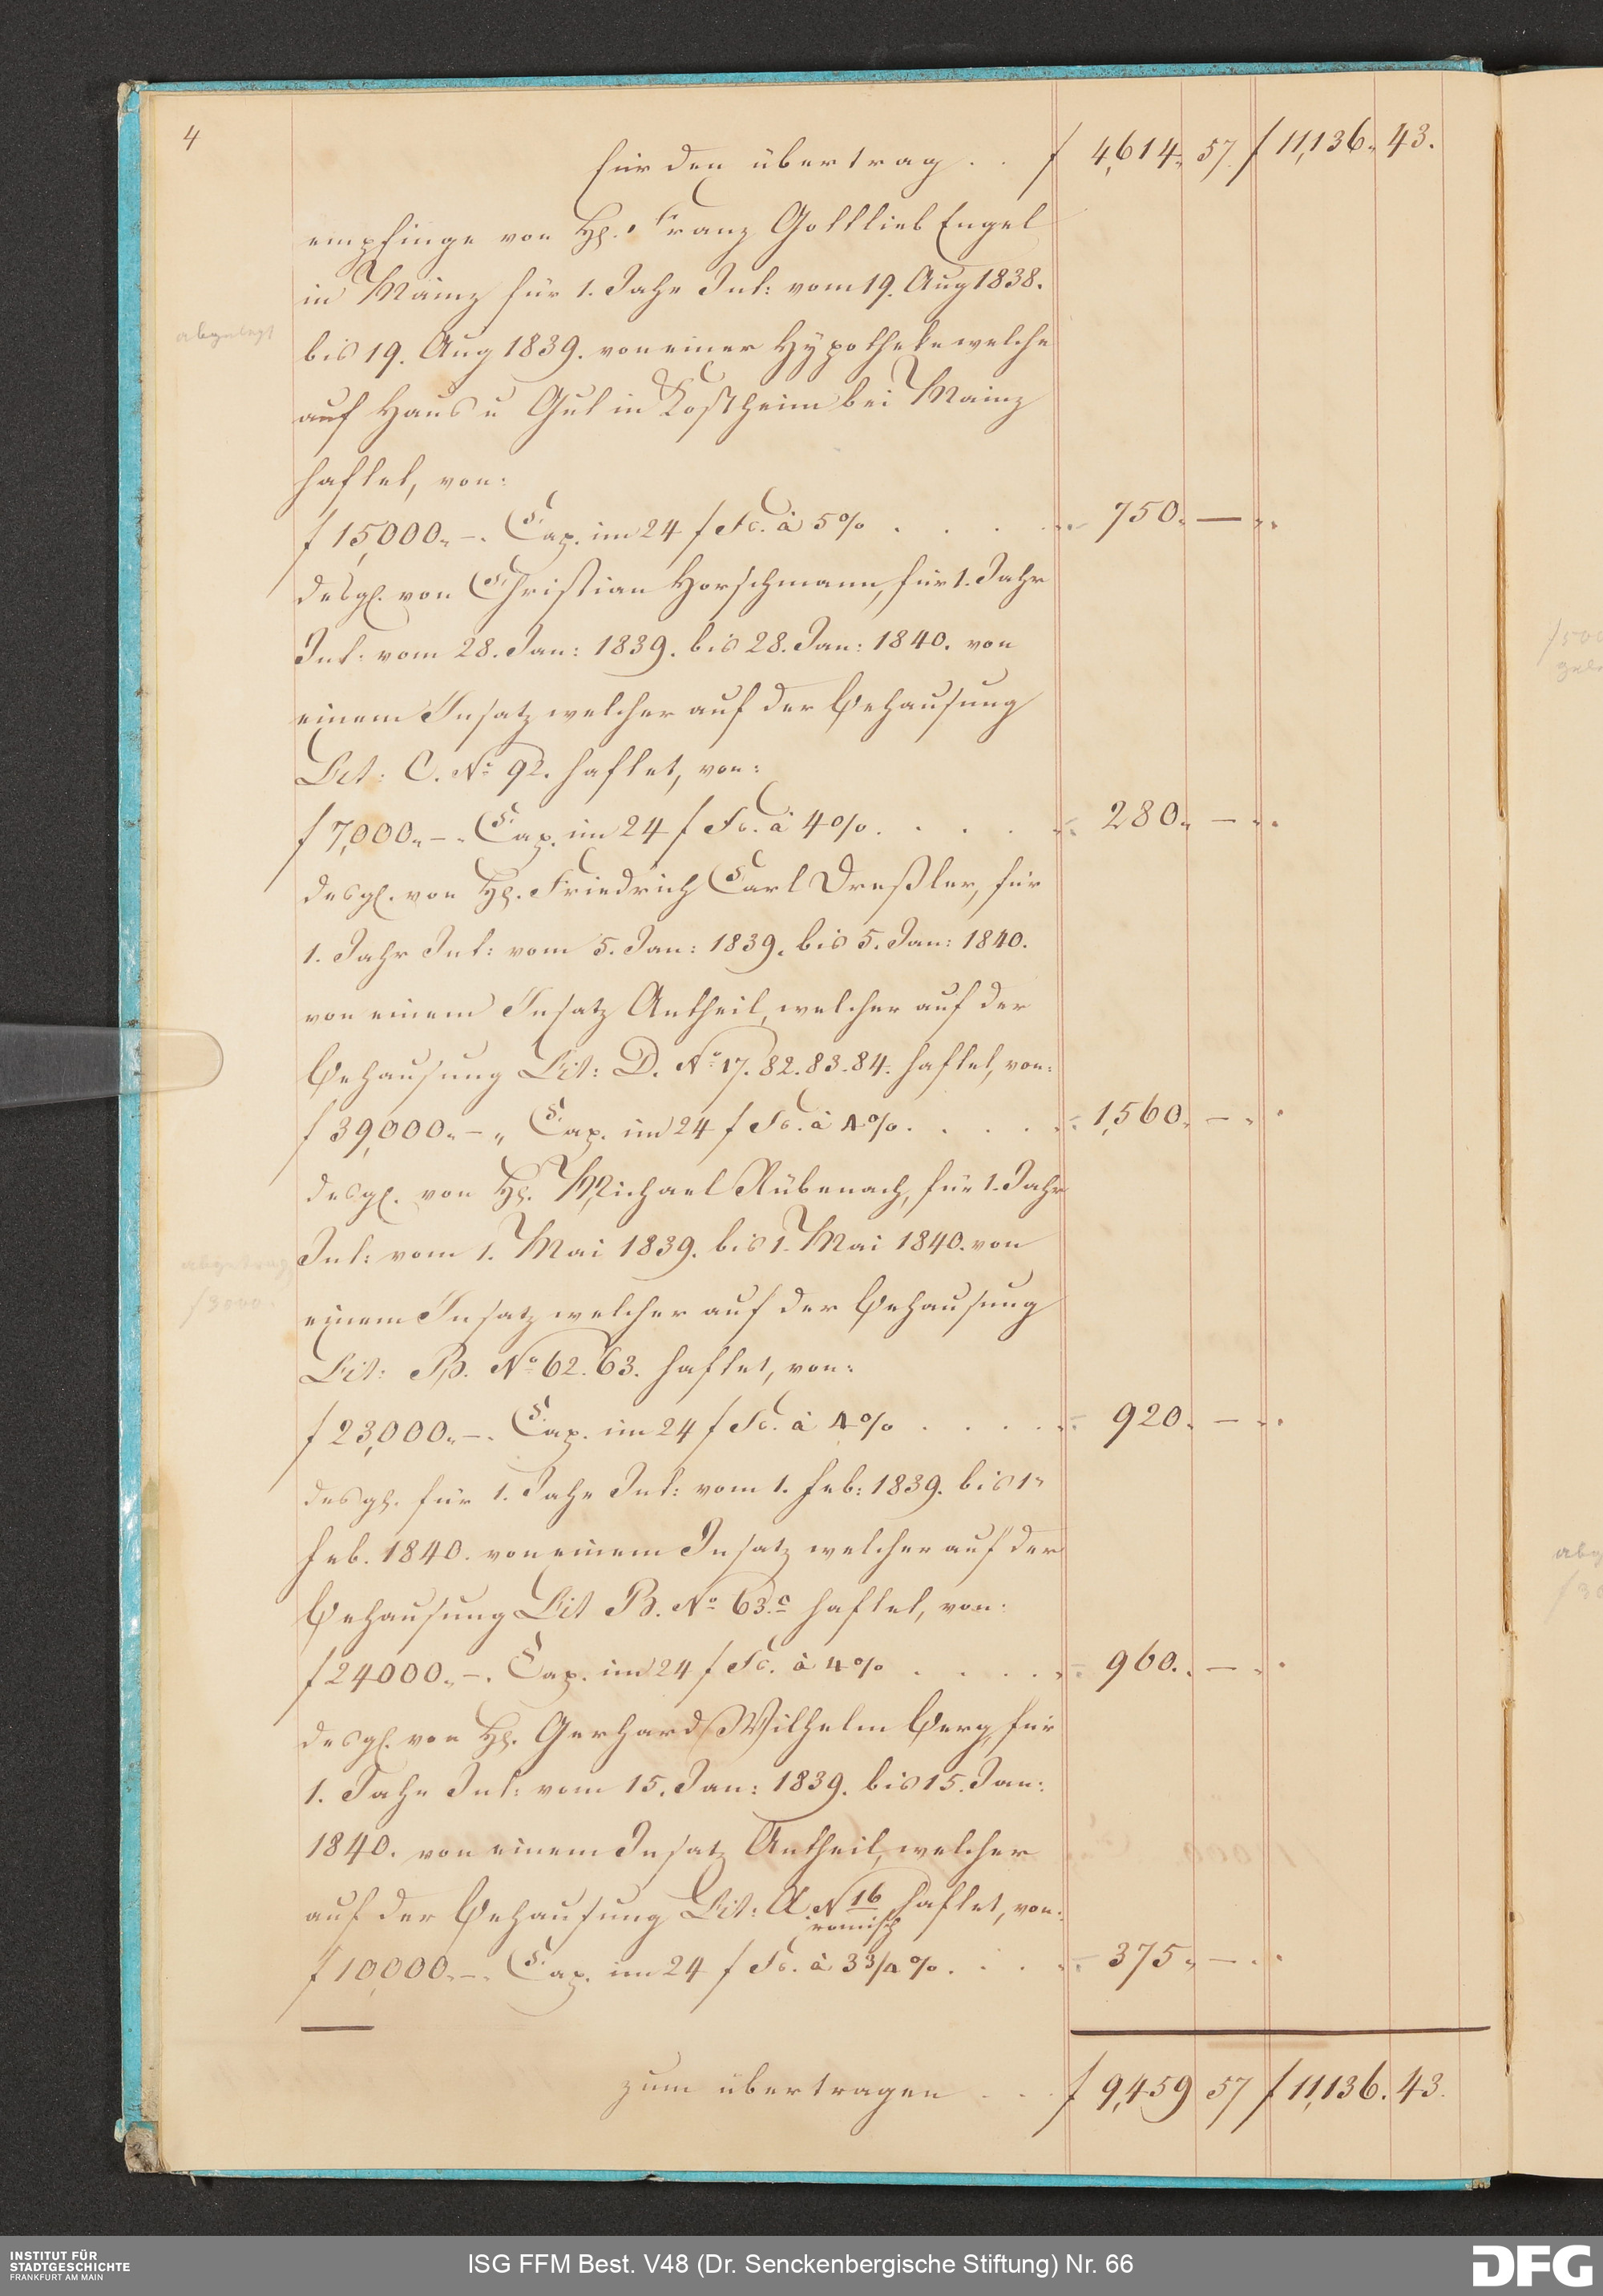 4
für den übertrag . . f 4,614„ 57. f 11,136„ 43.
empfinge von H. Franz Gottlieb Engel
in Mainz für 1. Jahr Int: vom 19. Aug 1838.
abgelegt
bis 19. Aug 1839. von einer Hypotheke welche
auf Haus u Gut in Kostheim bei Mainz
haftet, von:
f 15,000„ –. Cap. im 24 f Fs. à 5% . . . . „ 750„ — „.
desgl. von Christian Horschmann, für 1. Jahr
Int: vom 28. Jan: 1839. bis 28. Jan: 1840. von
einem Insatz welcher auf der Behausung
Lit: C. No 92. haftet, von:
f 7,000„ –. Cap. im 24 f Fs. à 4%. . . . „ 280„ – „.
desgl. von H. Friedrich Carl Dreßler, für
1. Jahr Int: vom 5. Jan: 1839. bis 5. Jan: 1840.
von einem Insatz Antheil, welcher auf der
Behausung Lit: D. No 17. 82. 83. 84. haftet, von:
f 39,000„ – „ Cap. im 24 f Fs. à 4%. . . . . „ 1,560„ – „.
desgl. von H. Michael Rübenach, für 1. Jahr
Int: vom 1. Mai 1839. bis 1. Mai 1840. von
abgetrag
f 3000.
einem Insatz welcher auf der Behausung
Lit: B. No 62. 63. haftet, von:
f 23,000„ –. Cap. im 24 f Fs. à 4% . . . . „ 920„ – „.
desgl. für 1. Jahr Int: vom 1. Feb: 1839. bis 1„
Feb. 1840. von einem Insatz welcher auf der
Behausung Lit B. No 63.c haftet, von:
f 24000„ –. Cap. im 24 f Fs. à 4% . . . . „ 960„ – „.
desgl. von H. Gerhard Wilhelm Berg, für
1. Jahr Int: vom 15. Jan: 1839. bis 15. Jan:
1840. von einem Insatz Antheil, welcher
auf der Behausung Lit: A N 16 haftet, von:
römisch
f 10,000„ –. Cap. im 24 f Fs. à 3 3/4%. . . . „ 375„ – „.
zum übertragen . . . f 9,459 57 f 11,136. 43.
INSTITUT FÜR
STADTGESCHICHTE
FRANKFURT AM MAIN
ISG FFM Best. V48 (Dr. Senckenbergische Stiftung) Nr. 66
DFG